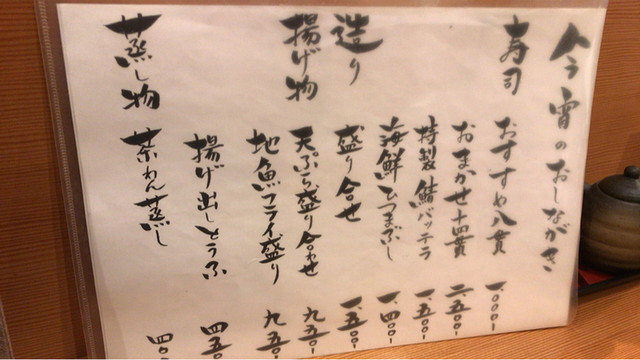 今宵のおしながき
寿司
おすすめ八貫 一、〇〇〇-
おまかせ十四貫 二、五〇〇-
特製鯖バッテラ 一、五〇〇-
海鮮ひつまぶし 一、四〇〇-
造り
盛り合せ 一、五〇〇-
揚げ物
天ぷら盛り合わせ 九五〇-
地魚フライ盛り 九五〇-
揚げ出しとうふ 四五〇-
蒸し物
茶わん蒸し 四〇